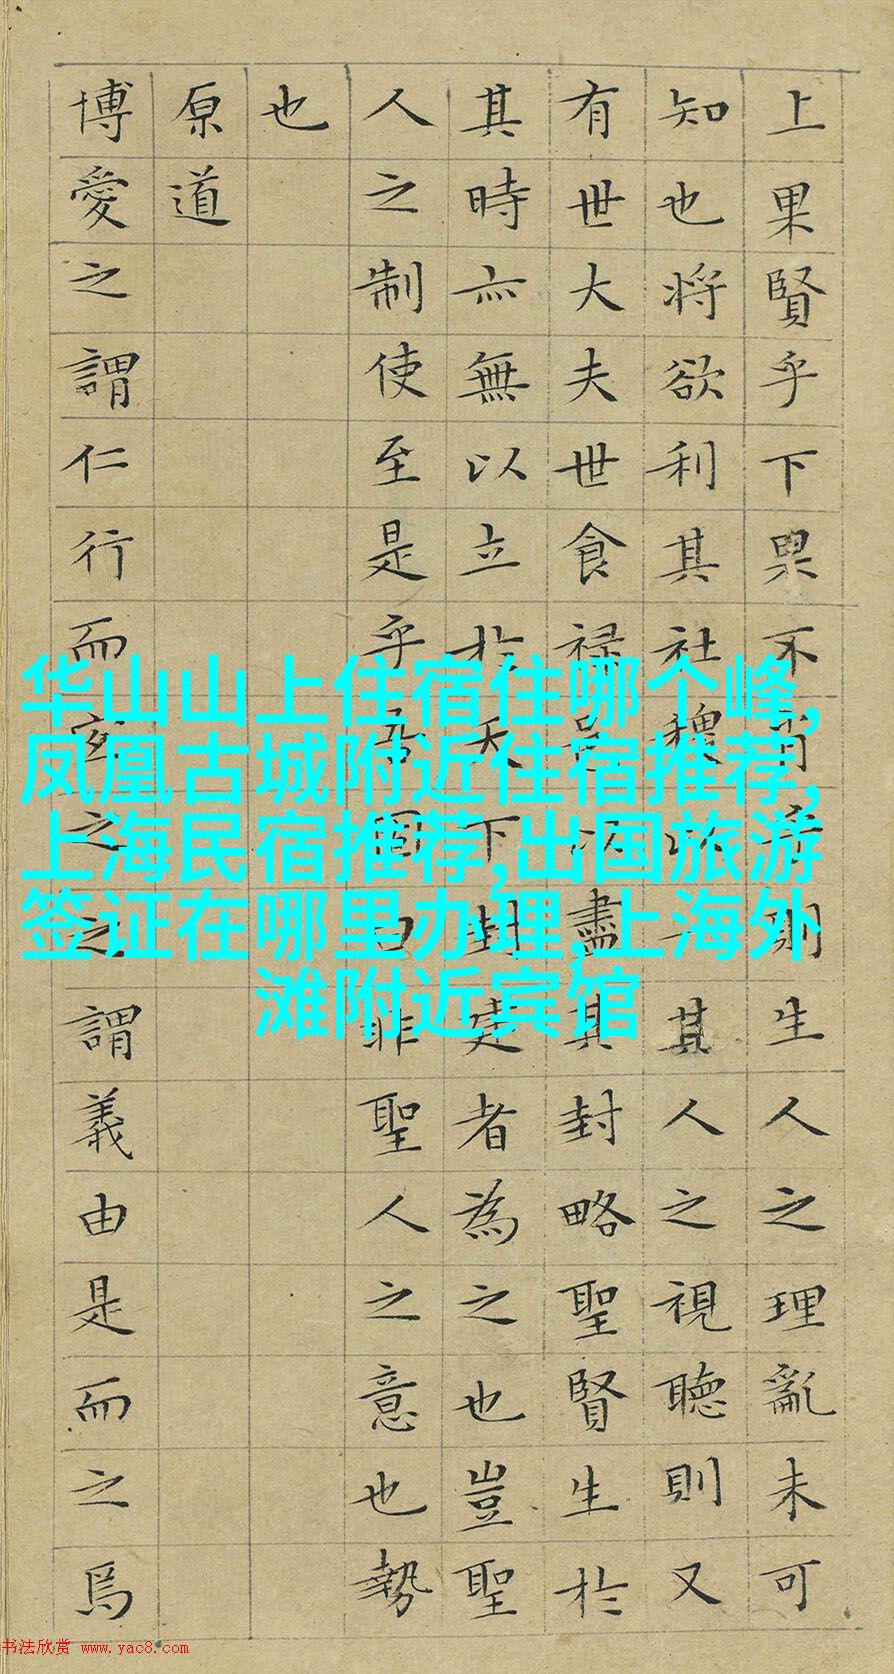 上果賢乎下果不肖者則生人之理亂未可
知也將欲利其社稷以一其人之視聽則又
有世大夫世食禄邑以盡其封略聖賢生於
其時亦無以立於天下封建者為之也豈聖
人之制使至是乎吾固曰非聖人之意也勢
也
原道
博愛之謂仁行而宜之之謂義由是而之焉
华山山上住宿住哪个峰,
凤凰古城附近住宿推荐,
上海民宿推荐,出国旅游
签证在哪里办理,上海外
滩附近宾馆
书法欣赏 www.yac8.com